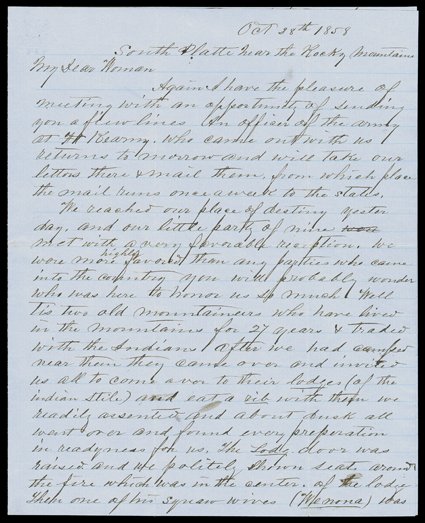 Oct 28th 1858
South Platte Near the Rocky Mountains
My Dear Woman
Again I have the pleasure of
meeting with an opportunity of sending
you a few lines An officer of the army
at Ft Kearny. who came out with us
returns to morrow and will take our
letters there & mail them, from which place
the mail runs once a week to the states.
We reached our place of destiny yester
day, and our little party of nine
met with a very favorable reception. We
were more highly favored than any parties who came
into the country you will probably wonder
who was here to honor us so much Well
tis two old mountaineers who have lived
in the mountains for 27 years & traded
with the Indians after we had camped
near them they came over and invited
us all to come over to their lodges (of the
indian stile) and eat a rib with them we
readily assented and about dusk all
went over and found every preperation
in readyness for us. The Lodge door was
raised and we politely shown seats around
the fire which was in the center. of the lodge
Then one of his squaw wives (Wenona) was